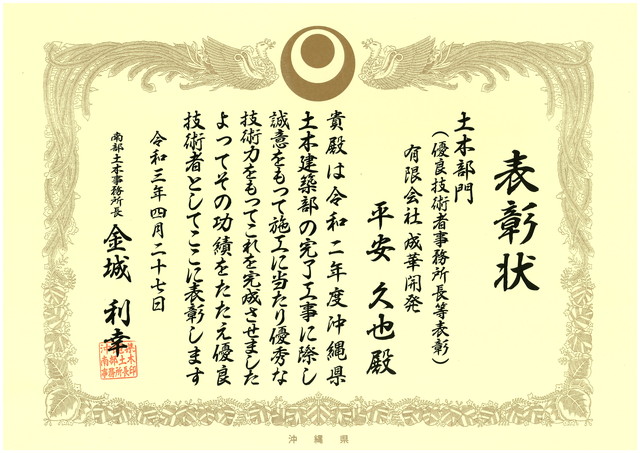 表彰状
土木部門
（優良技術者事務所長等表彰）
有限会社 成華開発
平安 久也 殿
貴殿は令和二年度沖縄県
土木建築部の完了工事に際し
誠意をもって施工に当たり優秀な
技術力をもってこれを完成させました
よってその功績をたたえ優良
技術者としてここに表彰します
令和三年四月二十七日
南部土木事務所長 金城 利幸
沖縄県
南部土木
事務所長印
沖縄県